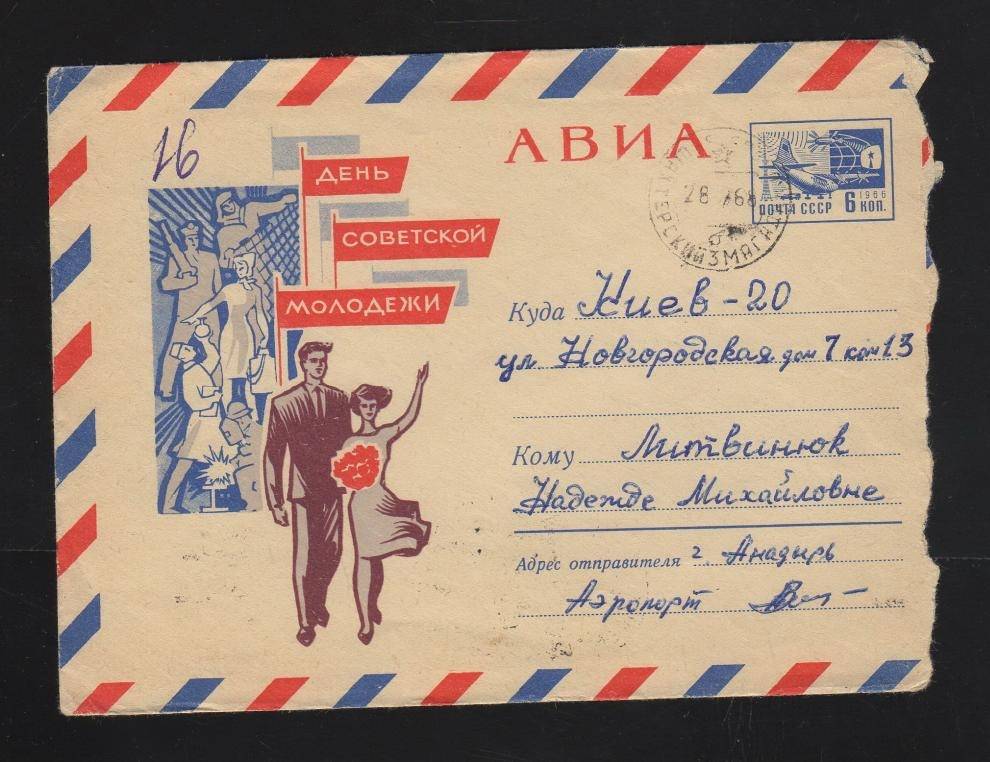 16
АВИА
ДЕНЬ
СОВЕТСКОЙ
МОЛОДЕЖИ
1966
ПОЧТА СССР 6 КОП.
28 68
Куда Киев-20
ул Новгородская дом 7 ком 13
Кому Литвинюк
Надежде Михайловне
Адрес отправителя г. Анадырь
Аэропорт